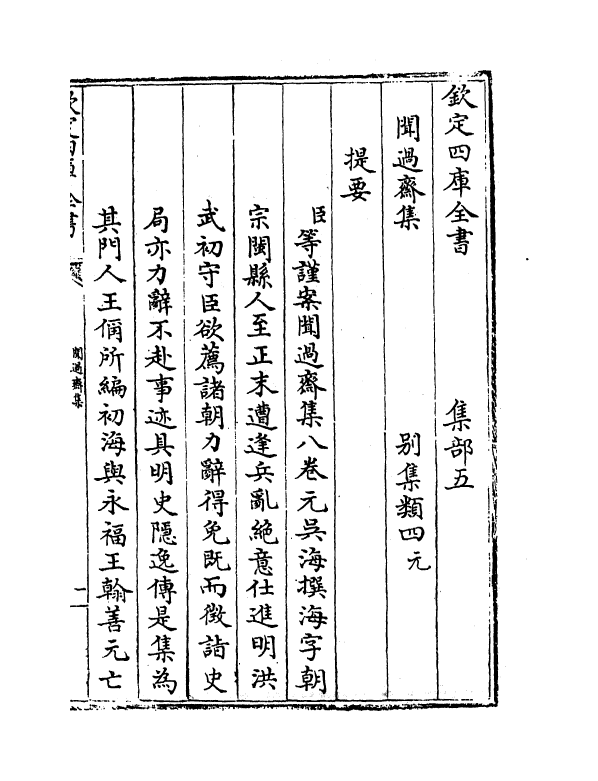 欽定四庫全書 集部五
聞過齋集 别集類四元
提要
臣等謹案聞過齋集八卷元吳海撰海字朝
宗閩縣人至正末遭逢兵亂絶意仕進明洪
武初守臣欲薦諸朝力辭得免既而徵詣史
局亦力辭不赴事迹具明史隱逸傳是集為
其門人王偁所編初海與永福王翰善元亡
欽定四庫全書
聞過齋集